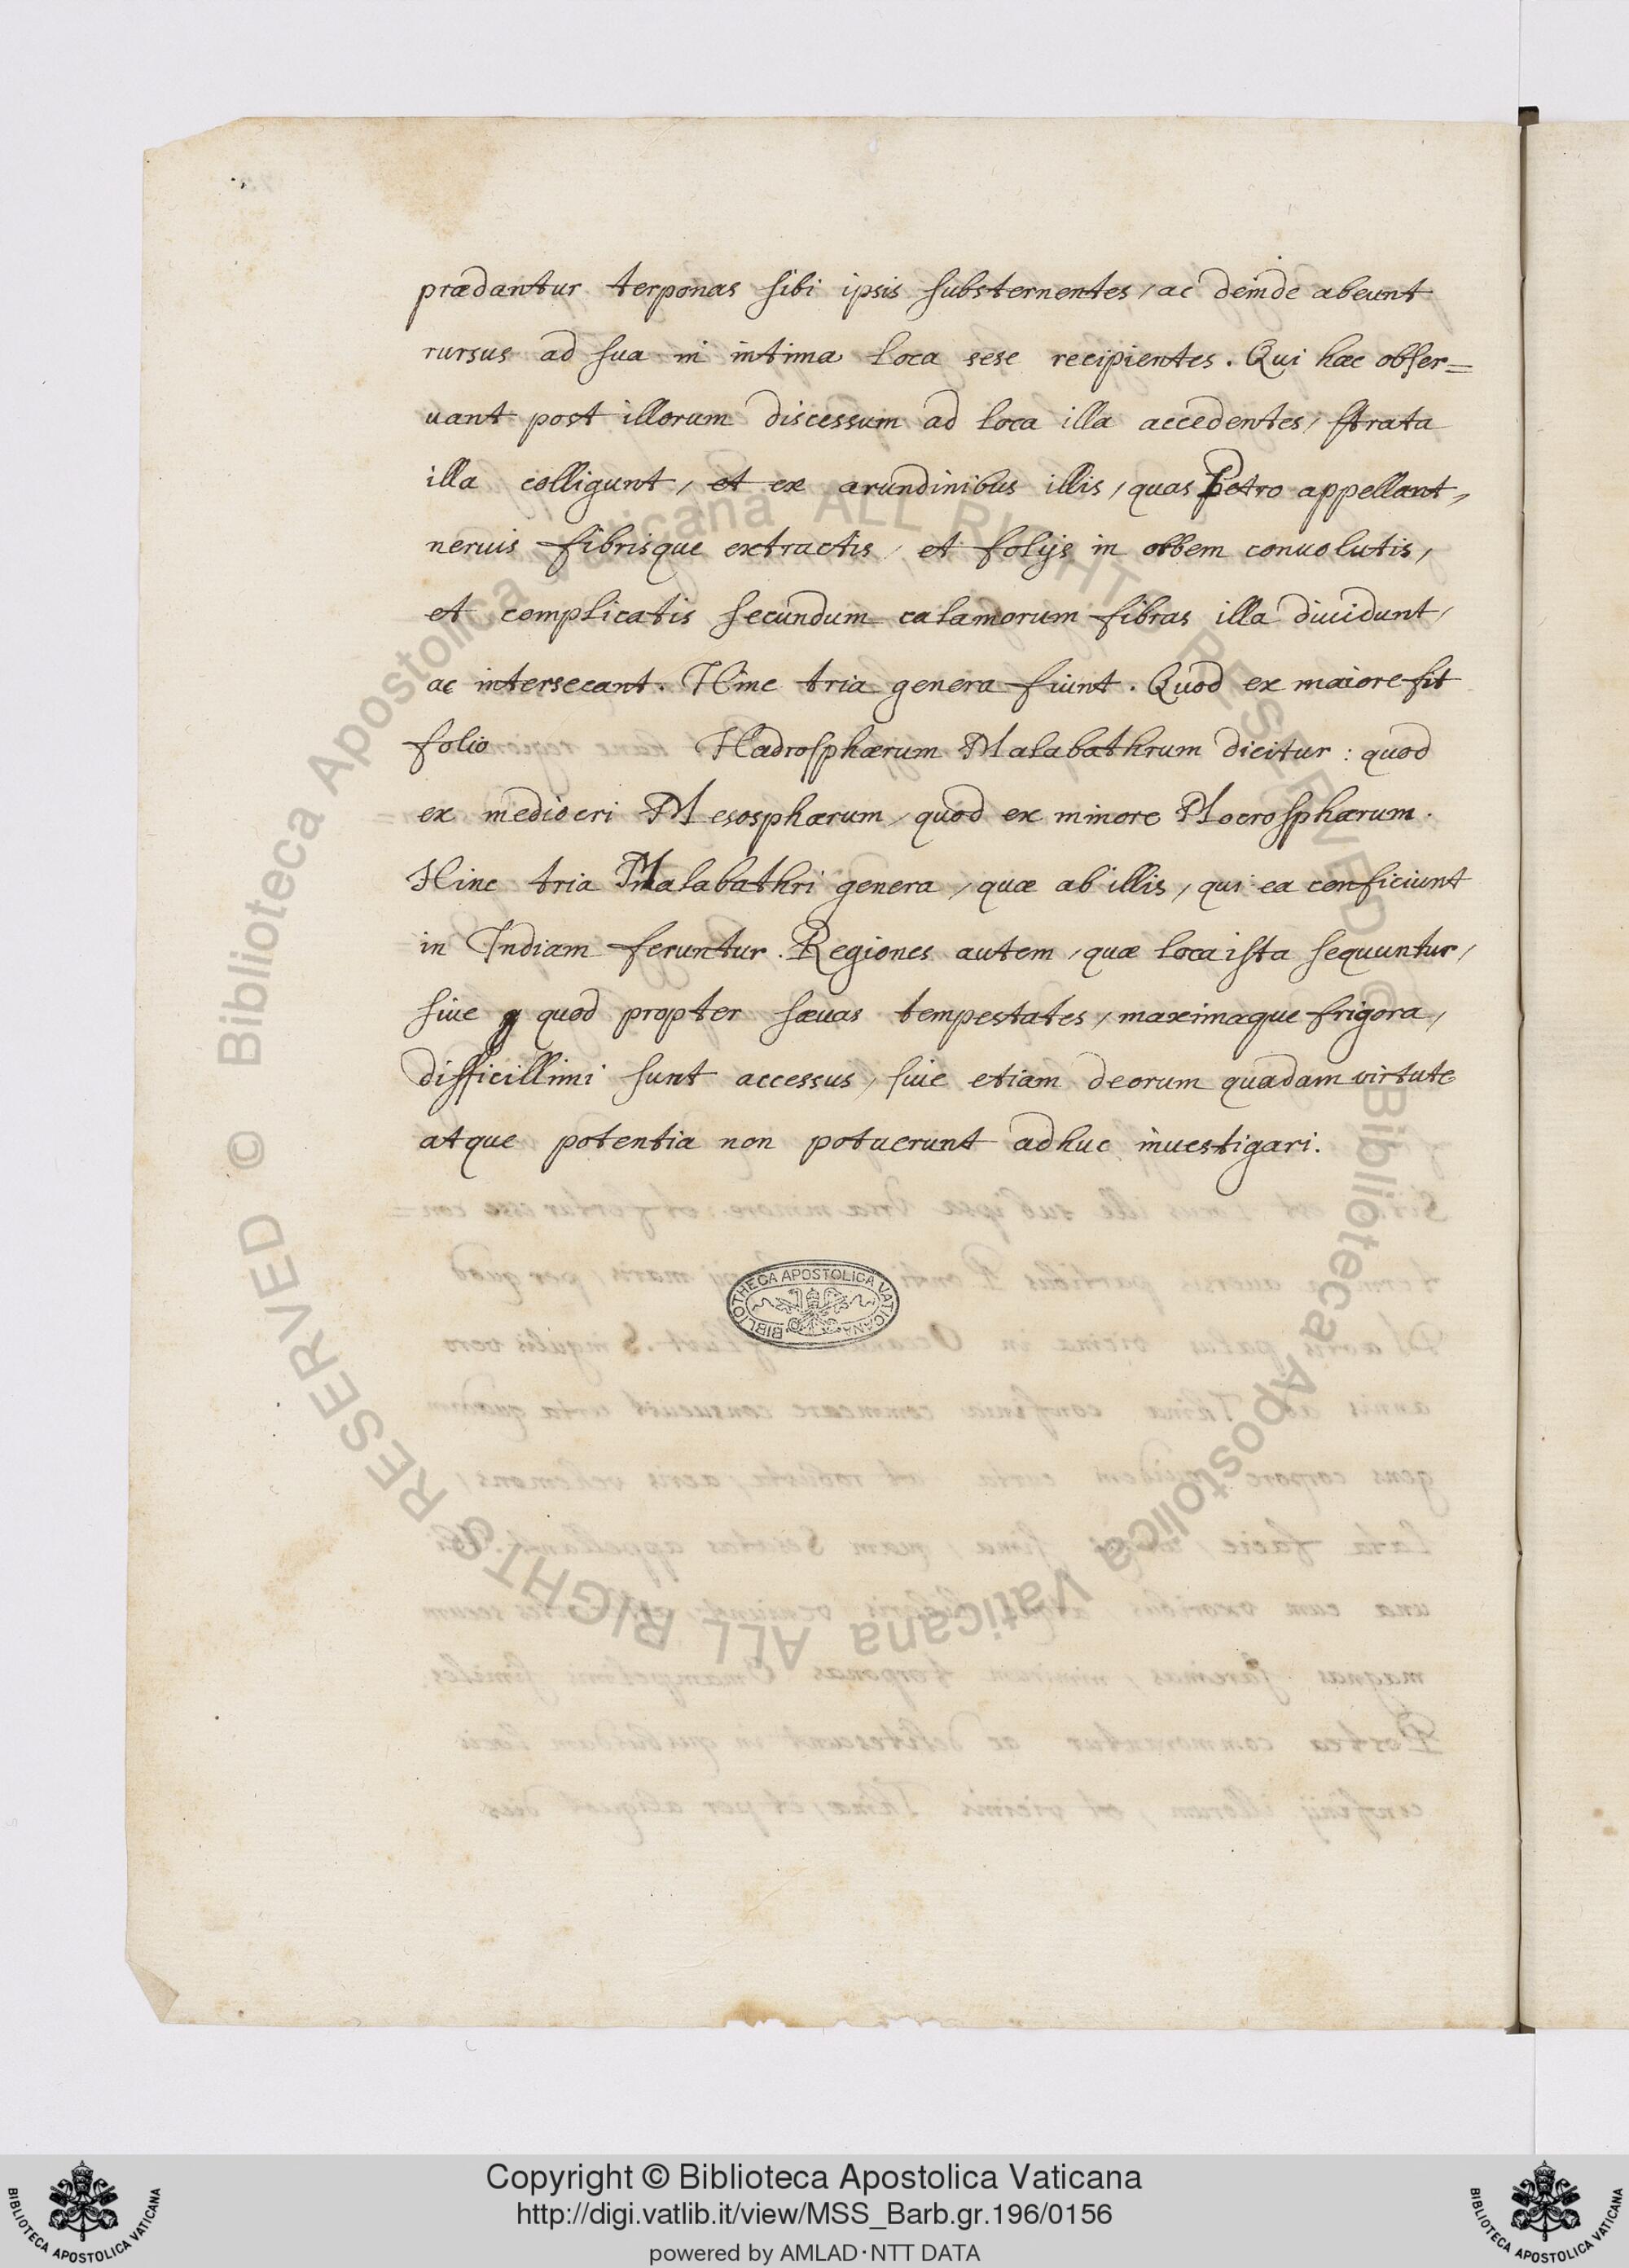 prædantur terponas sibi ipsis substernentes, ac deinde abeunt
rursus ad sua in intima loca sese recipientes. Qui hæc obser=
uant post illorum discessum ad loca illa accedentes, strata
illa colligunt, et ex arundinibus illis, quas Petro appellant,
neruis fibrisque extractis, et folijs in orbem conuolutis,
et complicatis secundum calamorum fibras illa diuidunt,
ac intersecant. Hinc tria genera fiunt. Quod ex maiore fit
folio Hadrosphærum Malabathrum dicitur: quod
ex mediocri Mesosphærum, quod ex minore Mocrosphærum.
Hinc tria Malabathri genera, quæ ab illis, qui ea conficiunt
in Indiam feruntur. Regiones autem, quæ loca ista sequuntur,
siue q quod propter sæuas tempestates, maximaque frigora,
difficillimi sunt accessus, siue etiam deorum quadam virtute
atque potentia non potuerunt adhuc inuestigari.
BIBLIOTHECA APOSTOLICA VATICANA
© Biblioteca Apostolica Vaticana ALL RIGHTS RESERVED
© Biblioteca Apostolica Vaticana ALL RIGHTS RESERVED
Copyright © Biblioteca Apostolica Vaticana
http://digi.vatlib.it/view/MSS_Barb.gr.196/0156
powered by AMLAD·NTT DATA
BIBLIOTECA APOSTOLICA VATICANA
BIBLIOTECA APOSTOLICA VATICANA